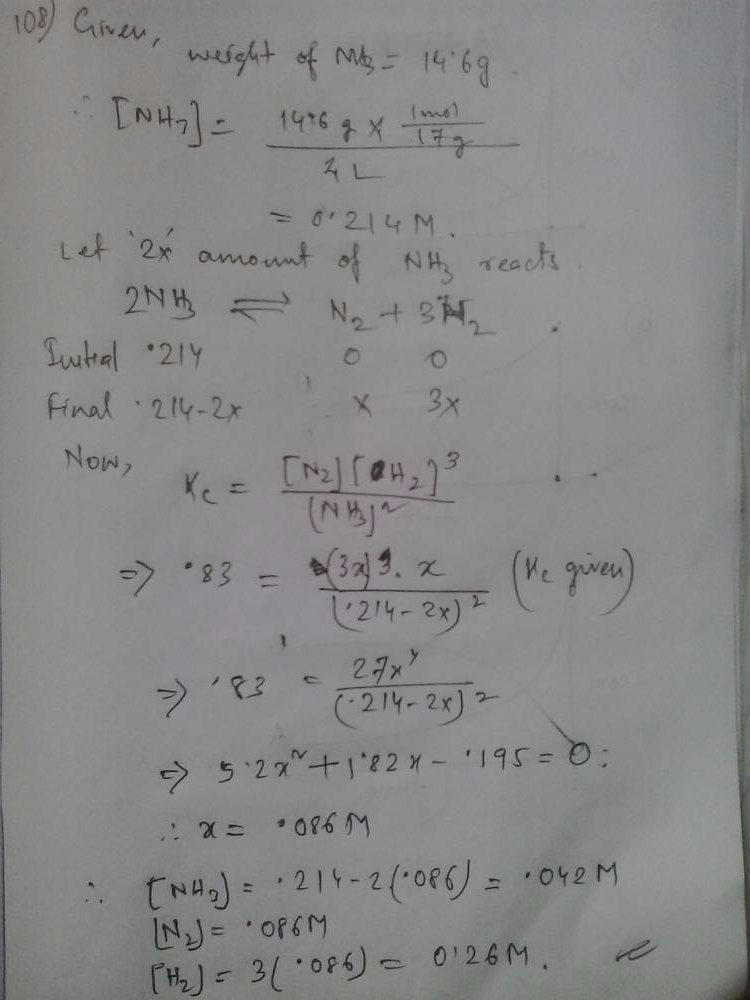 108) Given,
weight of NH3 = 14.6g.
∴ [NH3] = 14.6 g × 1mol/17g / 4 L
= 0.214 M.
Let '2x' amount of NH3 reacts.
2NH3 ⇌ N2 + 3H2
Initial .214 0 0
Final .214-2x x 3x
Now,
Kc = [N2][H2]^3 / (NH3)^2
=> .83 = (3x)3. x / (.214-2x)^2 (Kc given)
=> .83 = 27x^4 / (.214-2x)^2
=> 5.2x^2 + 1.82x - .195 = 0:
∴ x = .086M
∴ [NH3] = .214-2(.086) = .042M
[N2] = .086M
[H2] = 3(.086) = 0.26M.